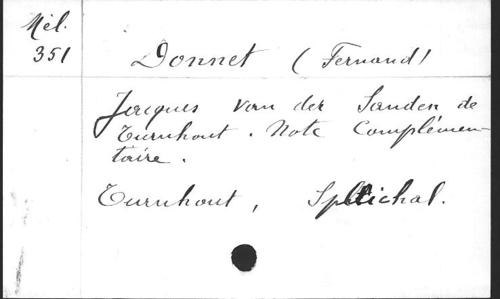 Mél.
351
Donnet (Fernand)
Jacques van der Sanden de
Turnhout. Note complémen-
taire.
Turnhout, Splichal.